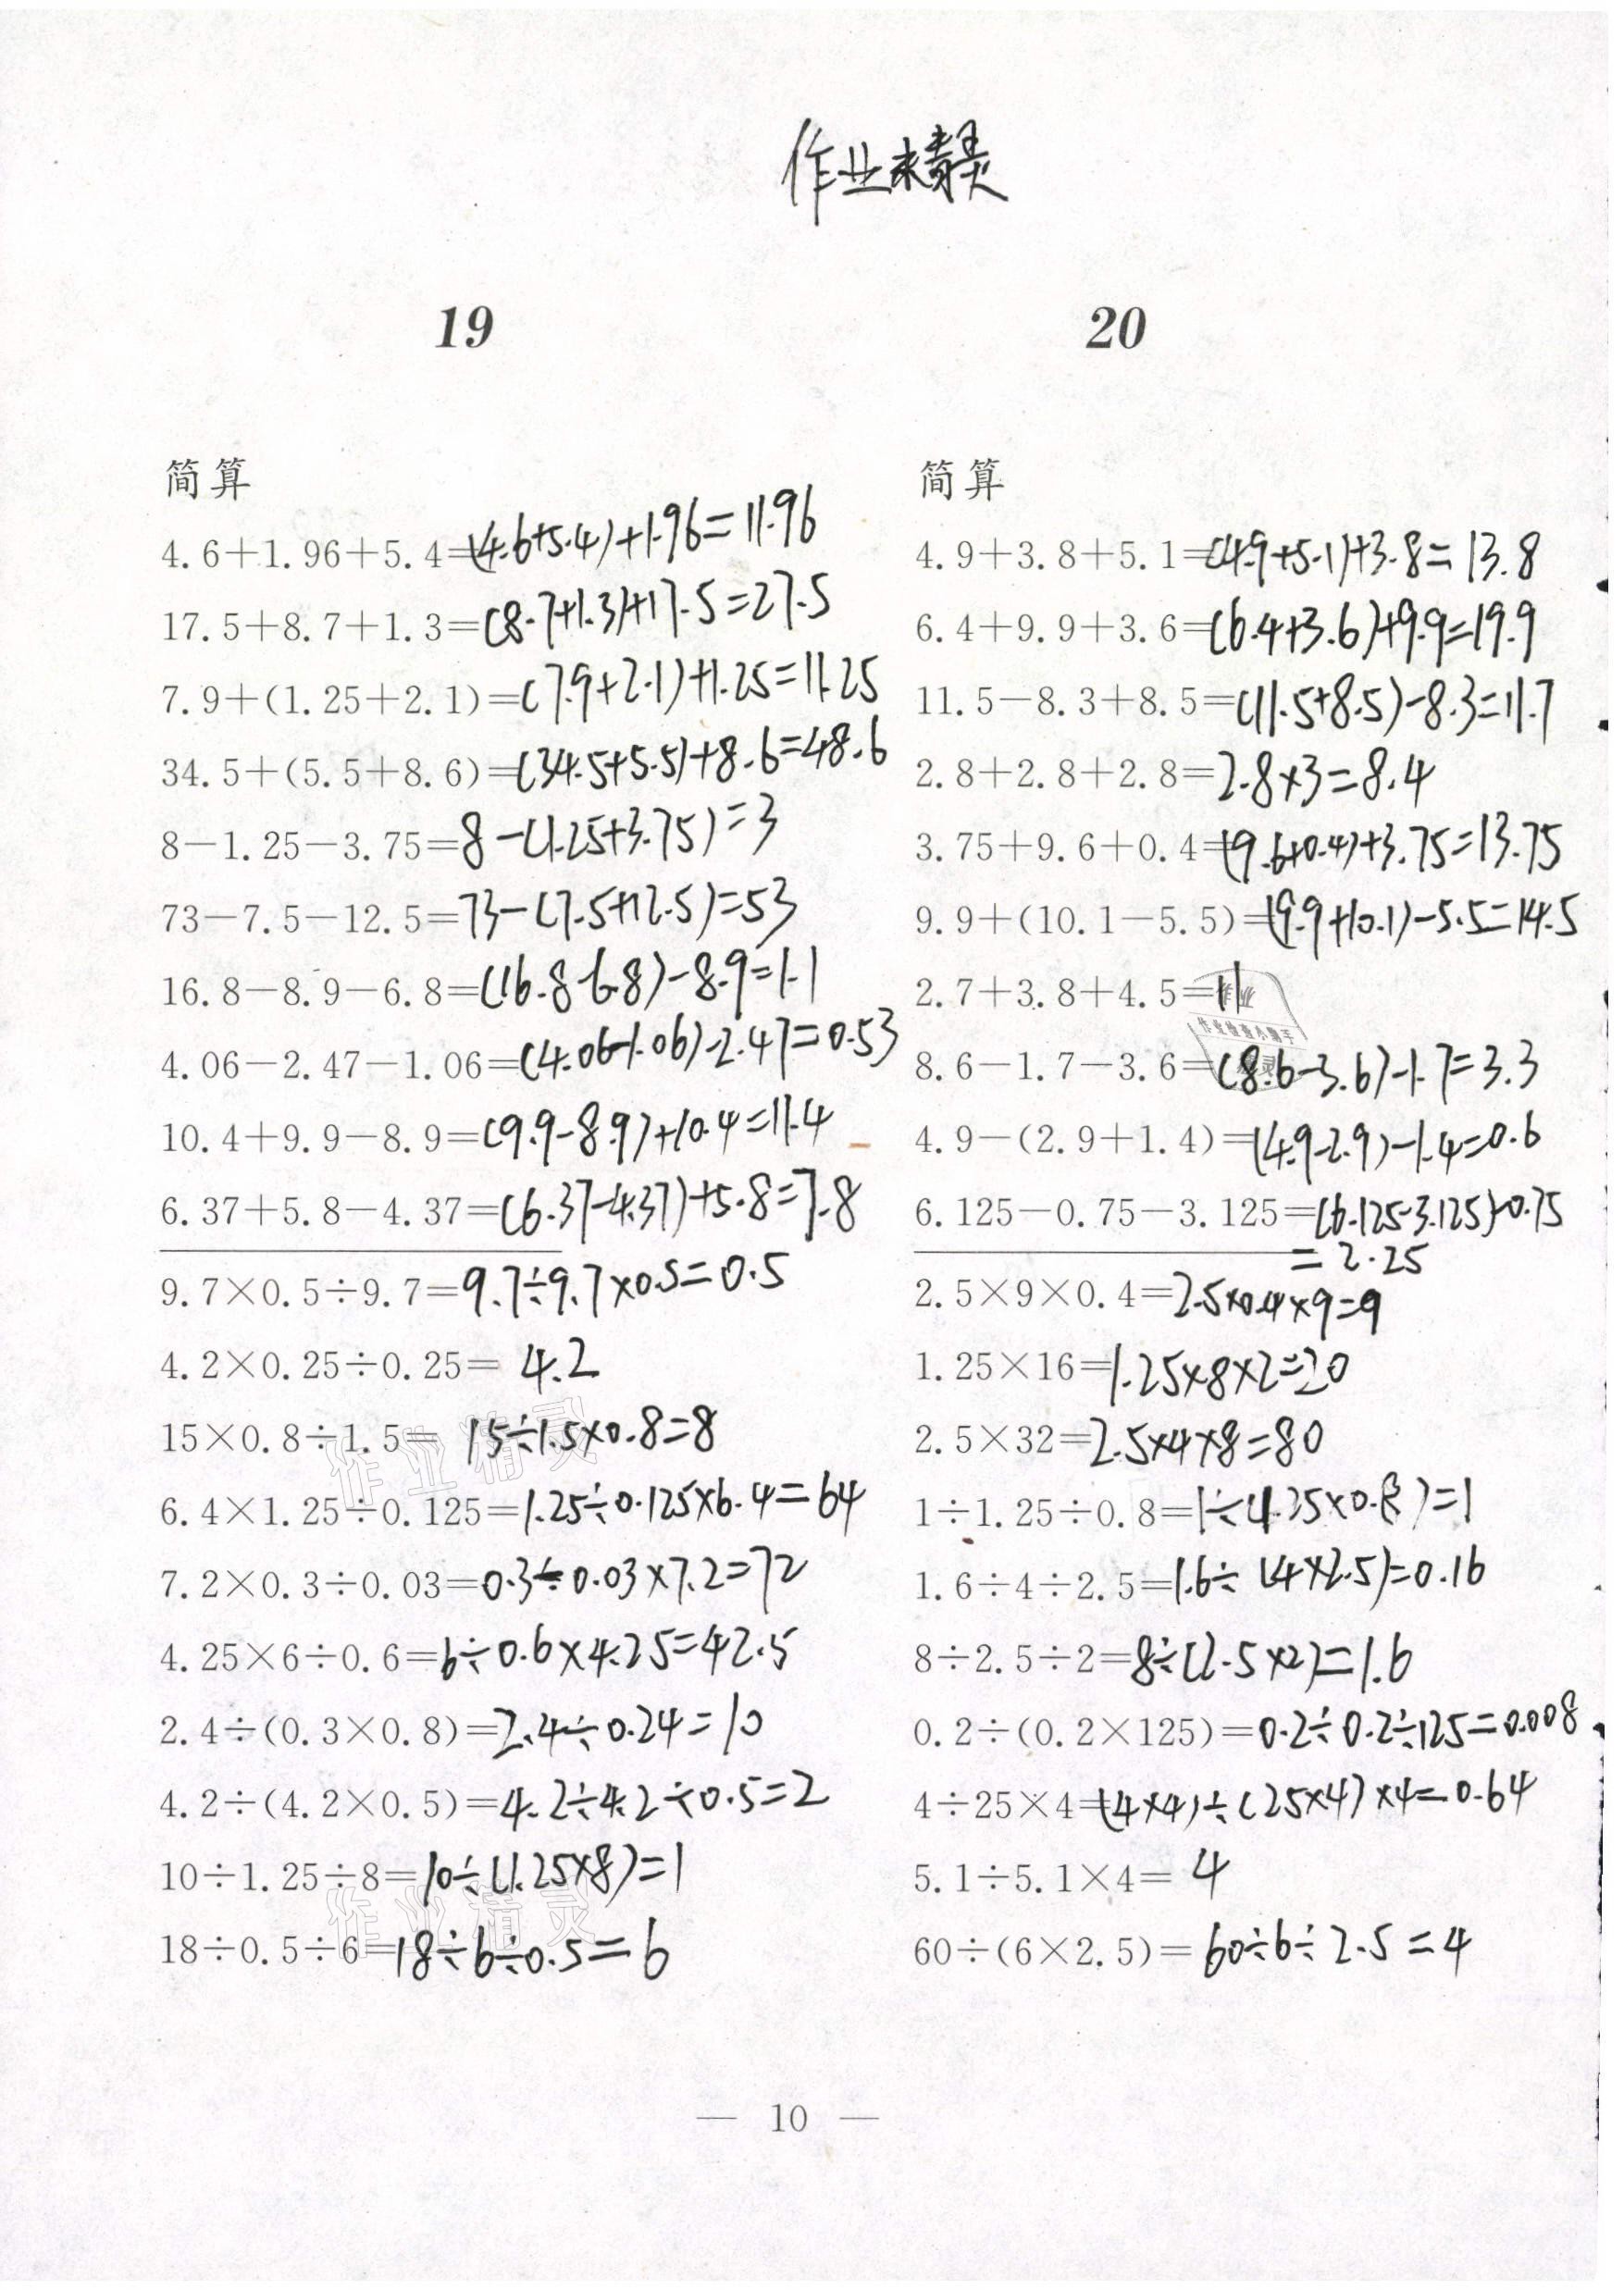 作业精灵
19
简算
4.6+1.96+5.4=(4.6+5.4)+1.96=11.96
17.5+8.7+1.3=(8.7+1.3)+17.5=27.5
7.9+(1.25+2.1)=(7.9+2.1)+1.25=11.25
34.5+(5.5+8.6)=(34.5+5.5)+8.6=48.6
8-1.25-3.75=8-(1.25+3.75)=3
73-7.5-12.5=73-(7.5+12.5)=53
16.8-8.9-6.8=(16.8-6.8)-8.9=1.1
4.06-2.47-1.06=(4.06-1.06)-2.47=0.53
10.4+9.9-8.9=(9.9-8.9)+10.4=11.4
6.37+5.8-4.37=(6.37-4.37)+5.8=7.8
9.7×0.5÷9.7=9.7÷9.7×0.5=0.5
4.2×0.25÷0.25=4.2
15×0.8÷1.5=15÷1.5×0.8=8
6.4×1.25÷0.125=1.25÷0.125×6.4=64
7.2×0.3÷0.03=0.3÷0.03×7.2=72
4.25×6÷0.6=6÷0.6×4.25=42.5
2.4÷(0.3×0.8)=2.4÷0.24=10
4.2÷(4.2×0.5)=4.2÷4.2÷0.5=2
10÷1.25÷8=10÷(1.25×8)=1
18÷0.5÷6=18÷6÷0.5=6
20
简算
4.9+3.8+5.1=(4.9+5.1)+3.8=13.8
6.4+9.9+3.6=(6.4+3.6)+9.9=19.9
11.5-8.3+8.5=(11.5+8.5)-8.3=11.7
2.8+2.8+2.8=2.8×3=8.4
3.75+9.6+0.4=(9.6+0.4)+3.75=13.75
9.9+(10.1-5.5)=(9.9+10.1)-5.5=14.5
2.7+3.8+4.5=11
8.6-1.7-3.6=(8.6-3.6)-1.7=3.3
4.9-(2.9+1.4)=(4.9-2.9)-1.4=0.6
6.125-0.75-3.125=(6.125-3.125)-0.75
=2.25
2.5×9×0.4=2.5×0.4×9=9
1.25×16=1.25×8×2=20
2.5×32=2.5×4×8=80
1÷1.25÷0.8=1÷(1.25×0.8)=1
1.6÷4÷2.5=1.6÷(4×2.5)=0.16
8÷2.5÷2=8÷(2.5×2)=1.6
0.2÷(0.2×125)=0.2÷0.2÷125=0.008
4÷25×4=(4×4)÷(25×4)×4=0.64
5.1÷5.1×4=4
60÷(6×2.5)=60÷6÷2.5=4
— 10 —
作业精灵
作业精灵